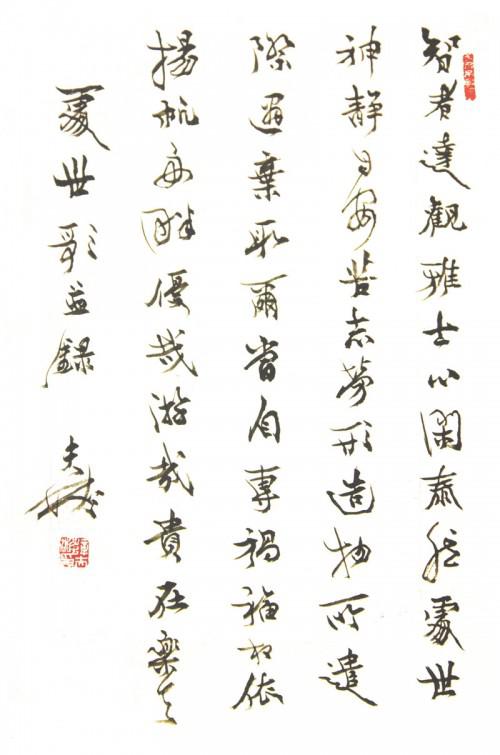 智者達觀雅士心閑泰然處世
神靜日安苦志勞形造物所遣
際遇棄取爾當自專禍福相依
揚帆優哉游哉貴在樂天
處世歌錄